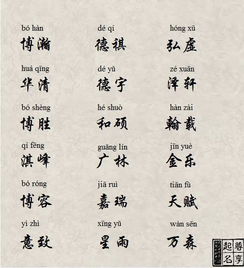 bó hàn dé qí hóng xū
博瀚 德祺 弘虚
huá qīng dé yǔ zé xuān
华清 德宇 泽轩
bó shèng hé shuò hàn zài
博胜 和硕 翰载
qí fēng guǎng lín jīn yuè
淇峰 广林 金乐
bó róng jiā ruì tiān fù
博容 嘉瑞 天赋
yì zhì xīng yǔ wàn sēn
意致 星雨 万森
起名